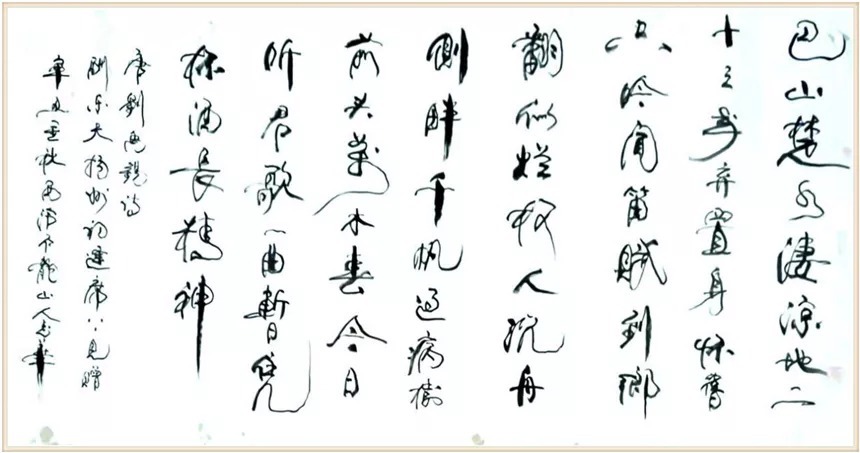 巴山楚水淒涼地二
十三年弃置身怀舊
空吟聞笛賦到鄉
翻似爛柯人沉舟
側畔千帆過病樹
前头萬木春今日
听君歌一曲暫凭
杯酒長精神
唐劉禹錫詩
酬乐天揚州初逢席上見贈
秋龍山人